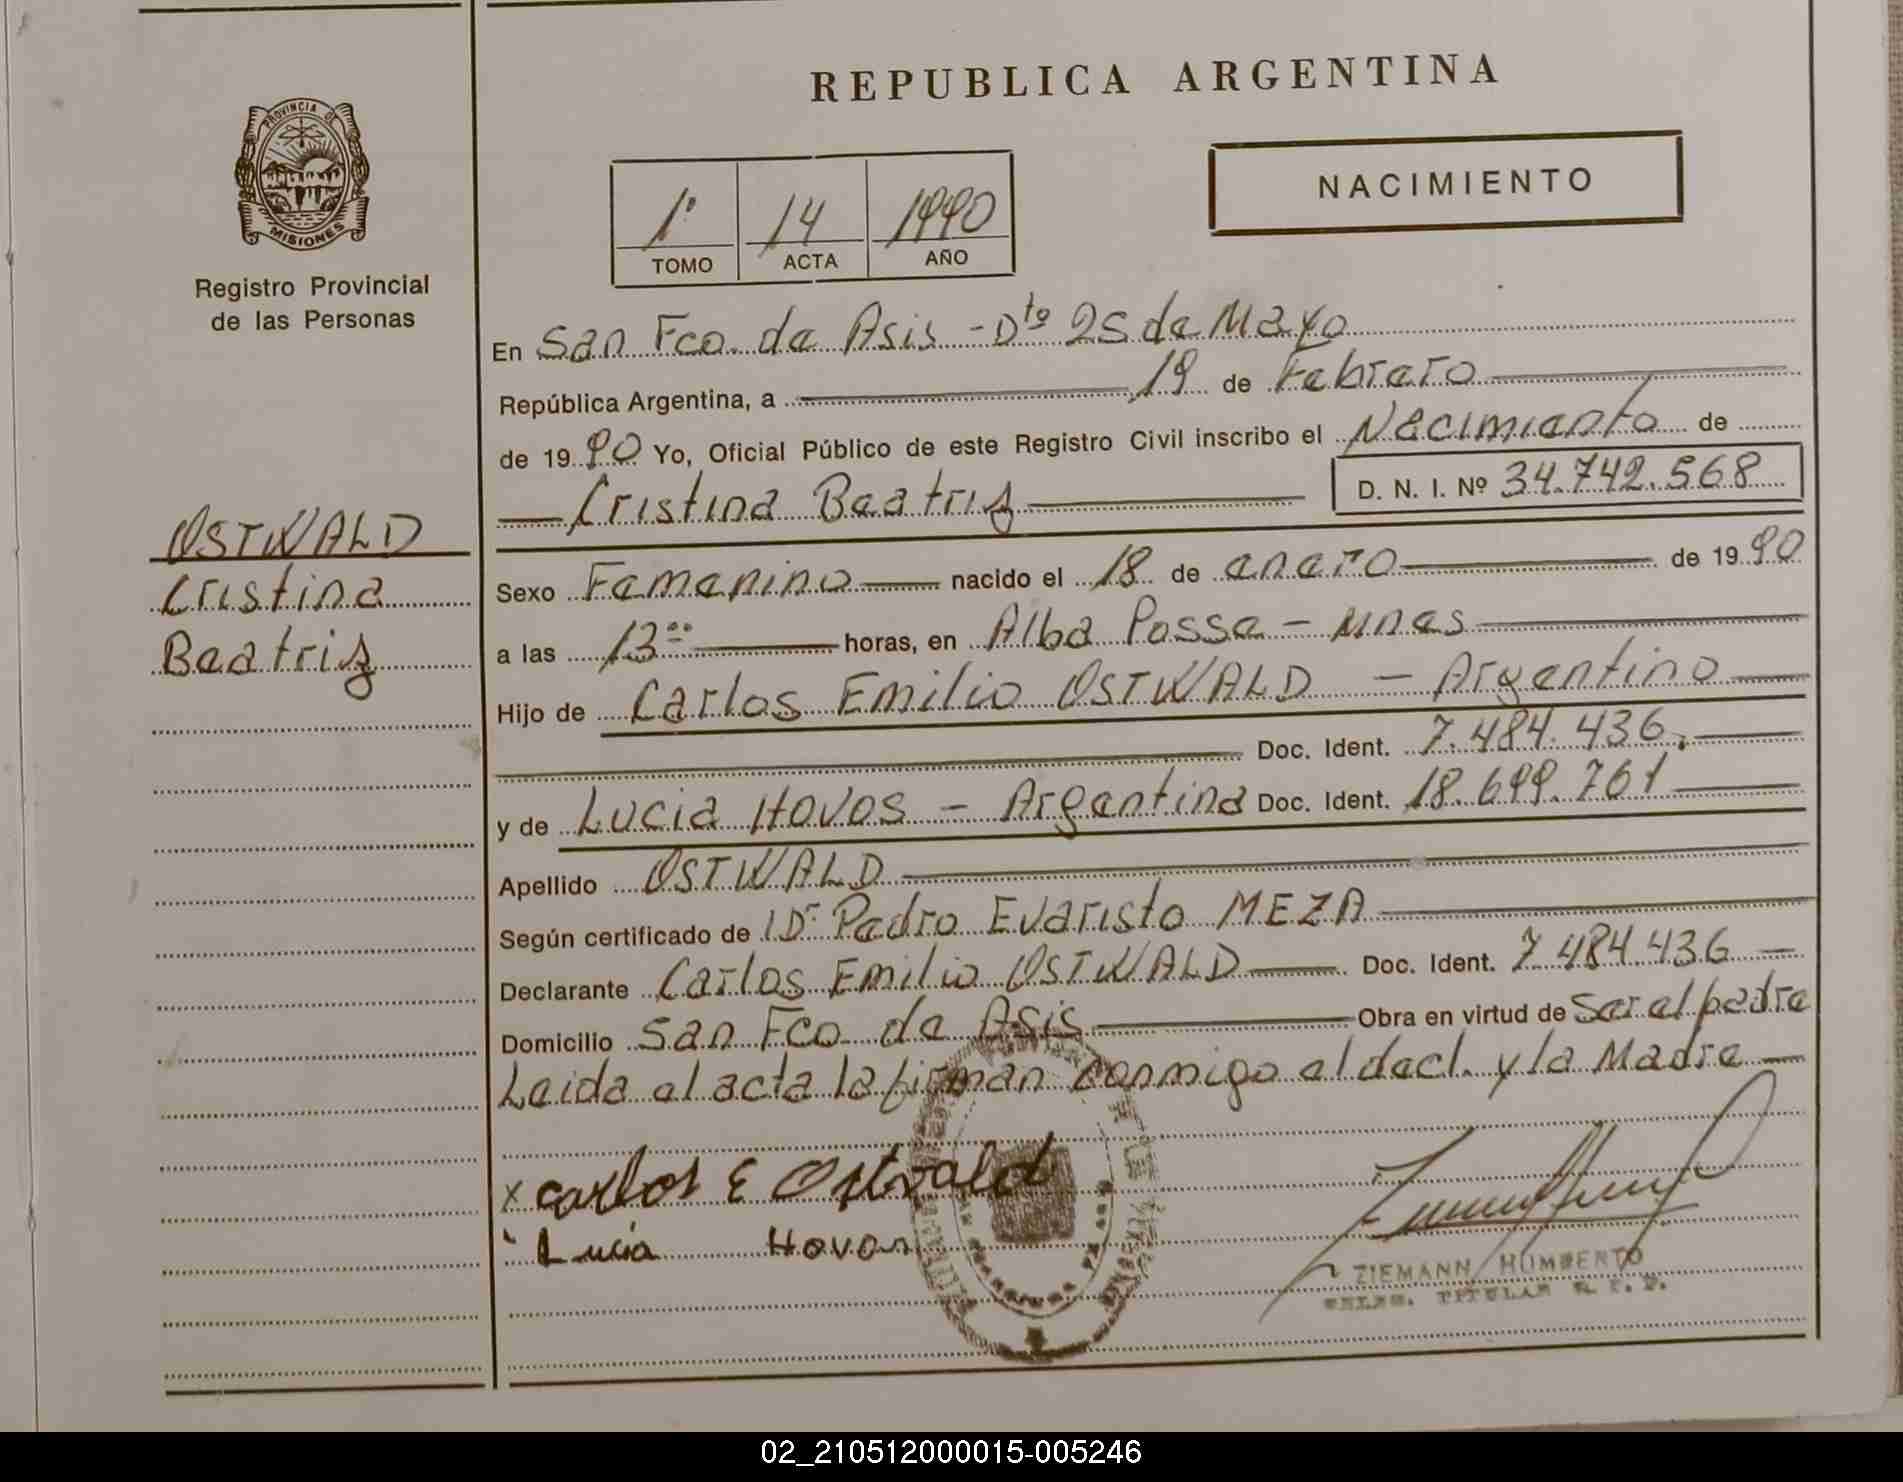 REPUBLICA ARGENTINA
PROVINCIA DE
MISIONES
Registro Provincial
de las Personas
NACIMIENTO
1º 14 1990
TOMO ACTA AÑO
En San Fco. de Asis - Dto 25 de Mayo
República Argentina, a 19 de Febrero
de 1990 Yo, Oficial Público de este Registro Civil inscribo el Nacimiento de
Cristina Beatriz D. N. I. Nº 34.742.568
OSTWALD
Cristina
Beatriz
Sexo Femenino nacido el 18 de enero de 1990
a las 13 00 horas, en Alba Posse - Mnes
Hijo de Carlos Emilio OSTWALD - Argentino
Doc. Ident. 7.484.436.
y de Lucia Hovos - Argentina Doc. Ident. 18.699.761
Apellido OSTWALD
Según certificado de Dr Pedro Evaristo MEZA
Declarante Carlos Emilio OSTWALD Doc. Ident. 7.484.436
Domicilio San Fco de Asis Obra en virtud de Ser el padre
Leida el acta la firman conmigo el decl. y la Madre
x Carlos E Ostvald
Lucia Hovos
ZIEMANN HUMBERTO
TITULAR R. P. P.
02_210512000015-005246